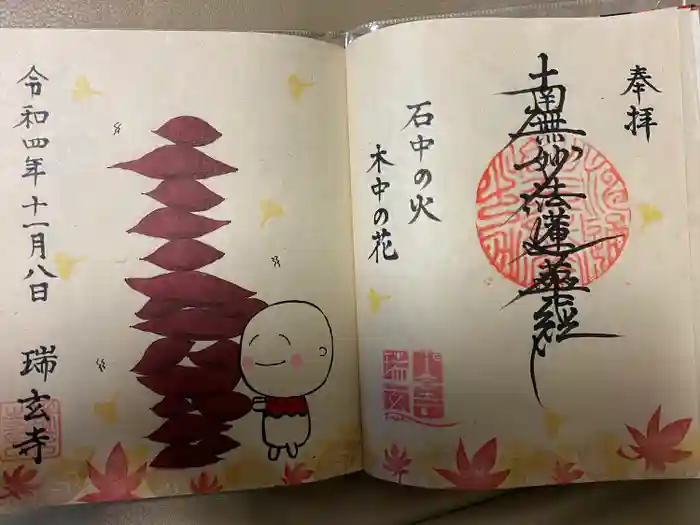 奉拝
南無妙法蓮華経
石中の火
木中の花
瑞玄
令和四年十一月八日
瑞玄寺